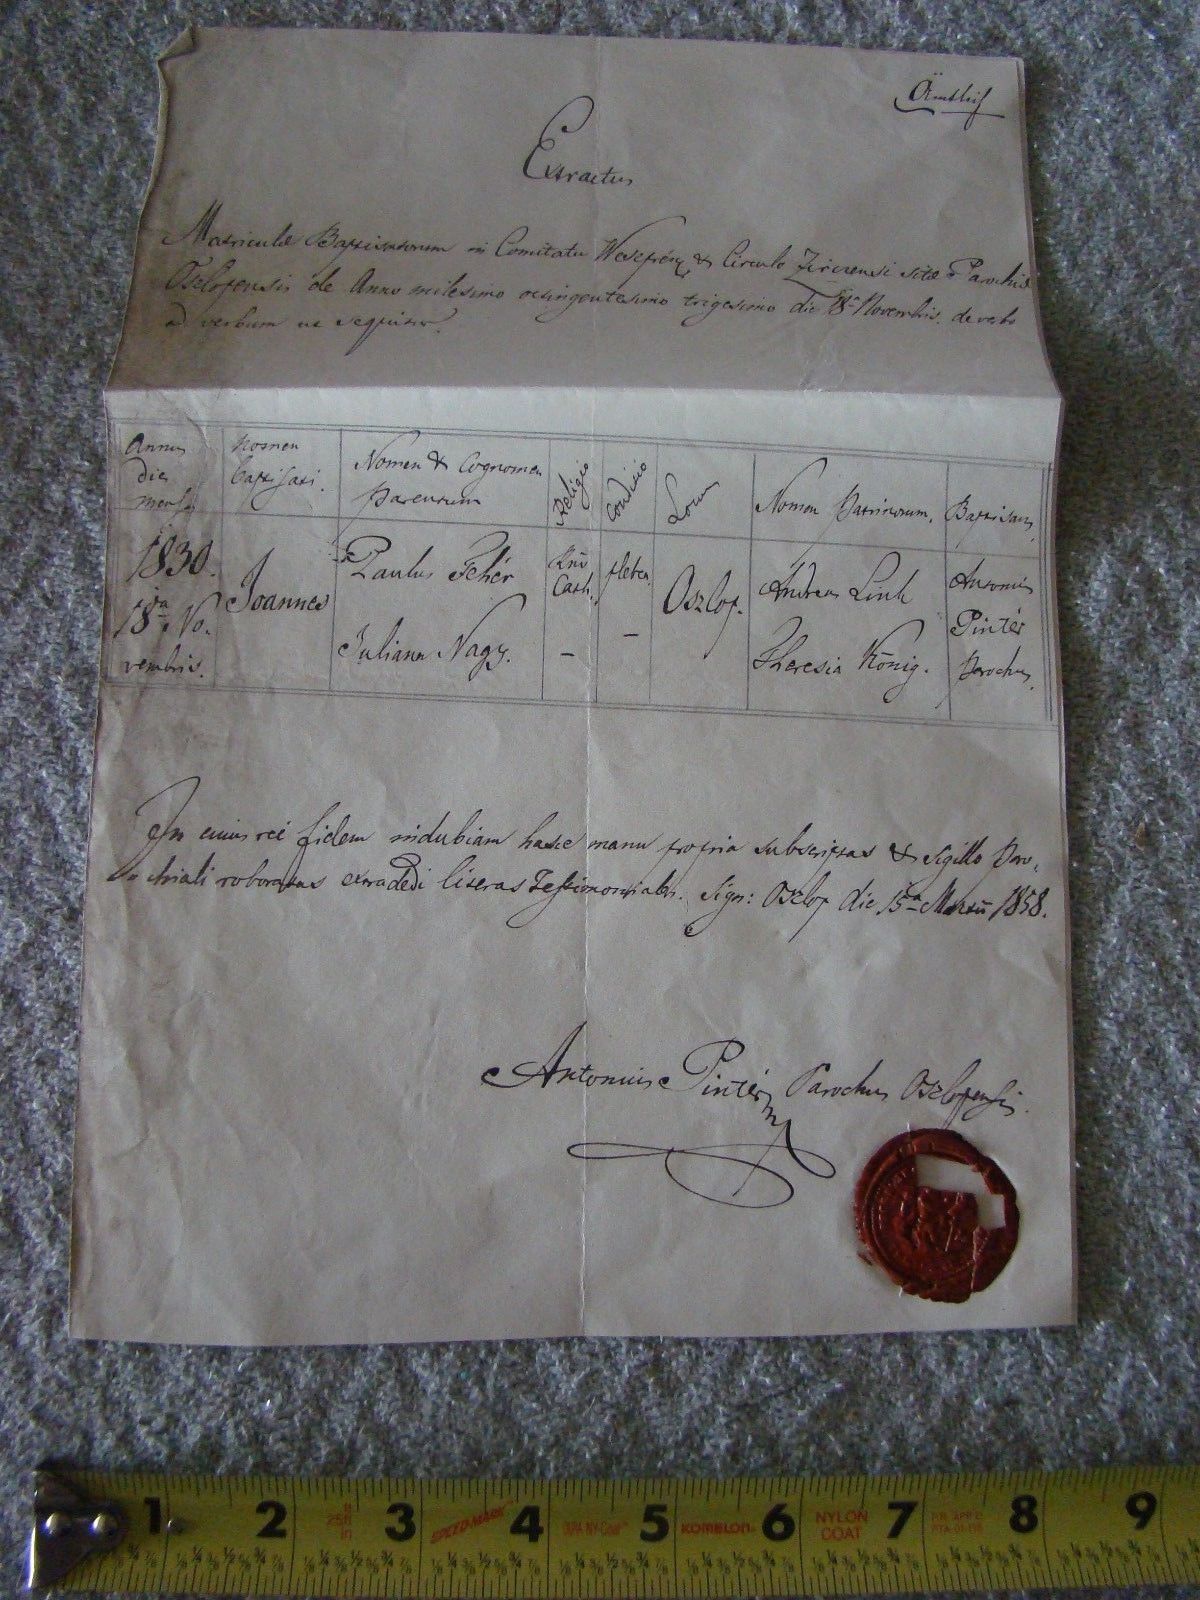 Ämtlich
Extractus
Matriculae Baptisatorum in Comitatu Weszprém & Circulo Zircensi sitae Parochiae
Oszlopensis de Anno milesimo octingentesimo trigesimo die 18a Novembris. de verbo
ad verbum ut sequitur.
Annus die mensis
Nomen baptisati.
Nomen & Cognomen Parentum
Religio
Conditio
Locus
Nomen Patrinorum.
Baptisans
1830. 18a No.vembris.
Joannes
Paulus Fehér
Juliana Nagy.
Cath.
–
pleben.
–
Oszlop.
Andreas Link
Theresia König.
Antonius Pintér Parochus.
In cuius rei fidem indubiam hasce manu propria subscriptas & sigillo Paro-
chiali roboratas extradedi literas Testimoniales. Sign: Oszlop die 15a Martii 1858.
Antonius Pintér Parochus Oszlopensis.
1 2 25ft 3 SPEED MARK 4 NY-Coat 5 KOMELON 6 NYLON COAT 7 8 9